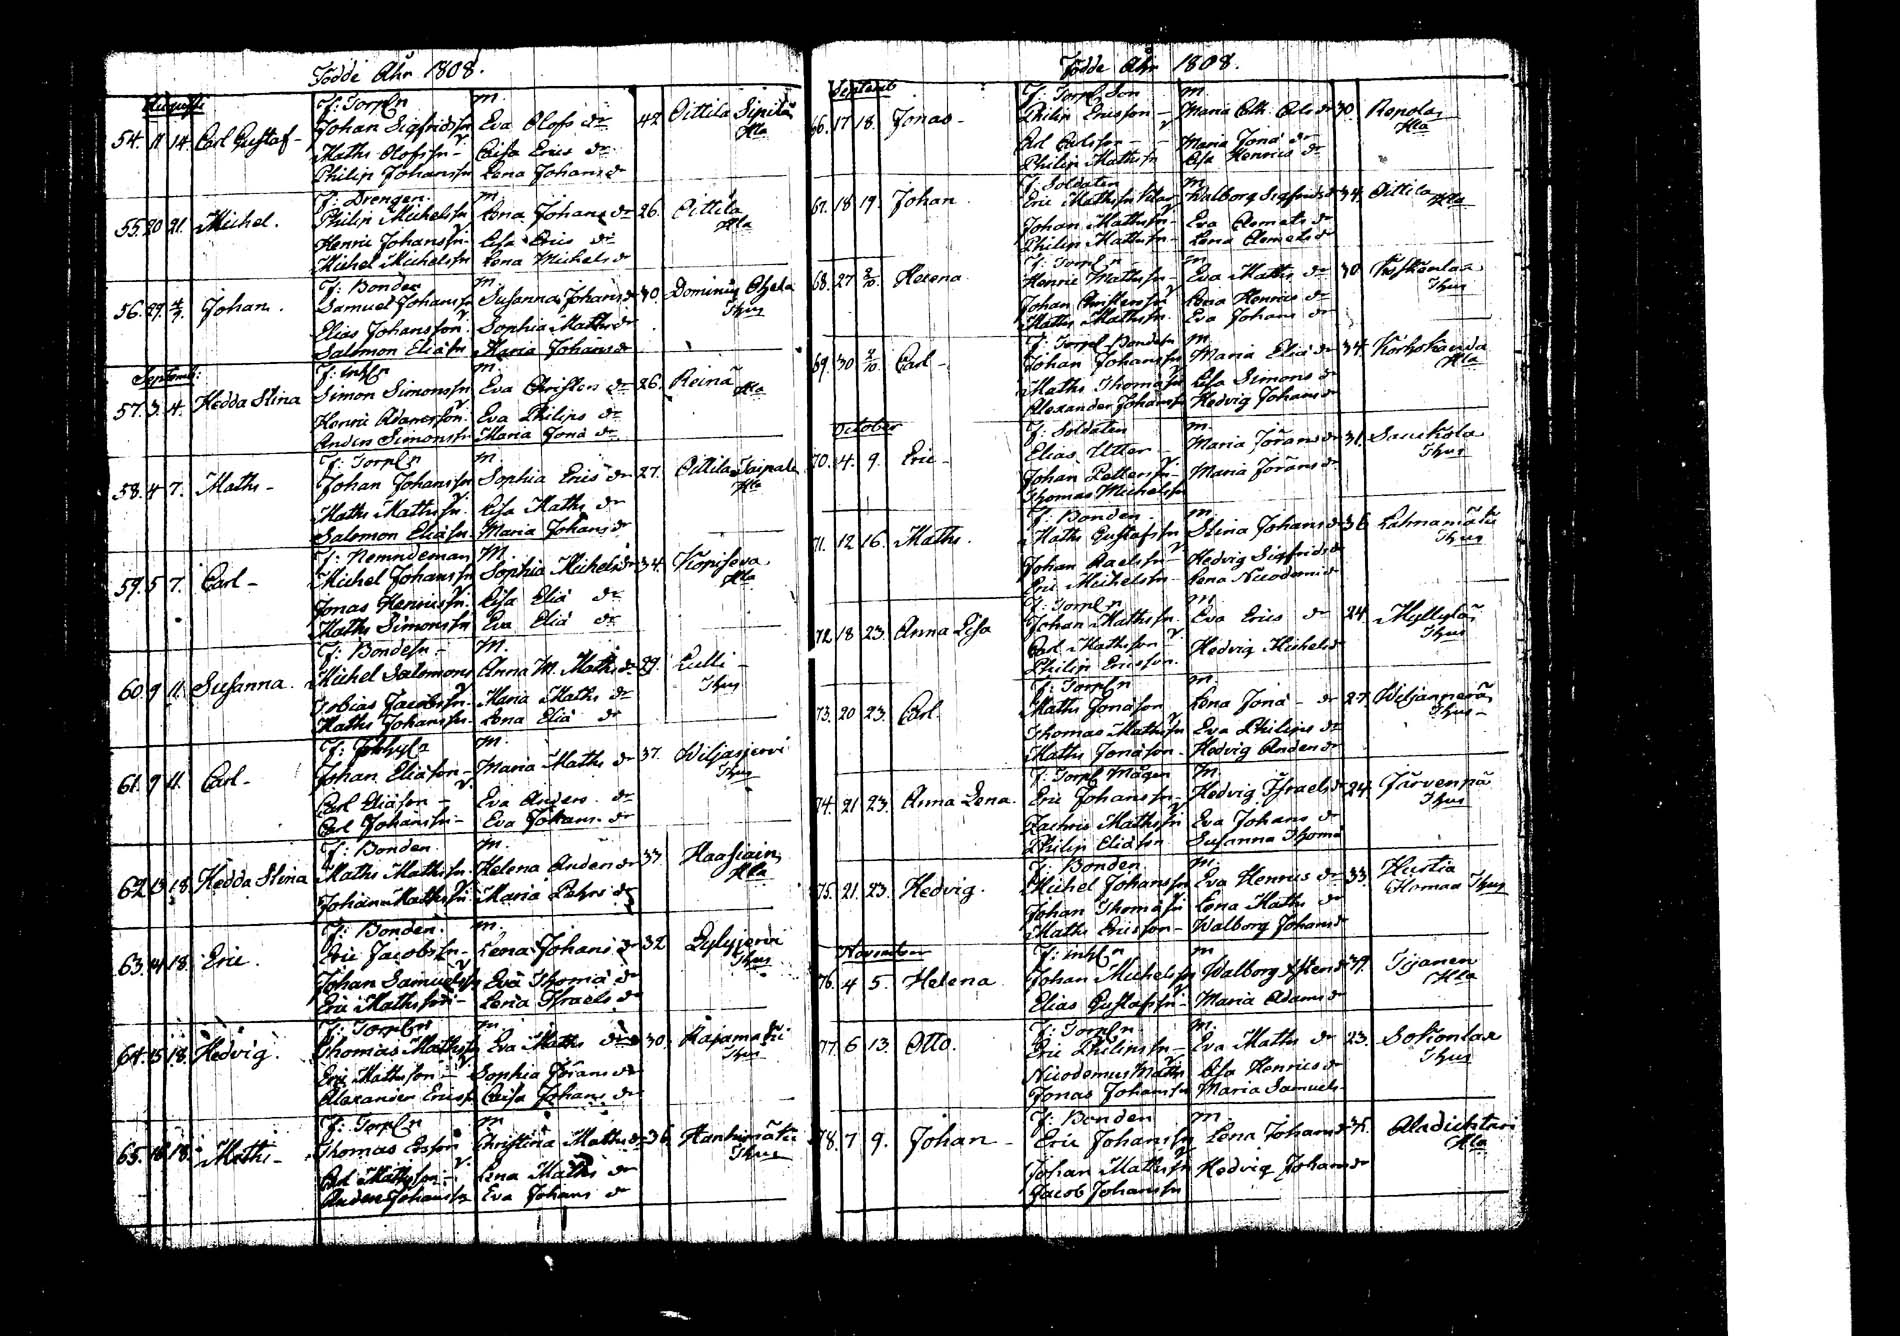 Födde Åhr 1808.
Augusti
F: Torp:n m.
54. 11 14. Carl Gustaf - Johan Sigfridsson Eva Olofs dr 42 Pittila Sipilä
Maths Olofsson - Caisa Erics dr Kla
Philip Johansson Lena Johans dr
F: Drengen m.
55. 20 21. Michel. Philip Michelsson Lena Johans dr 26. Pittila
Henric Johansson - Lisa Erics dr Kla
Michel Michelsson Lena Michels dr
F: Bonden m.
56. 29. 4/9. Johan. Samuel Johansson Susanna Johans dr 30. Dominus
Elias Johansson. Sophia Maths dr Thus
Salomon Eliæsson Maria Johans dr
Septemb:
F: inh:n m.
57. 3. 4. Hedda Stina Simon Simonsson Eva Christers dr 26. Reinä
Henric Adamsson. Eva Philips dr Kla
Anders Simonsson Maria Jonæ dr
F: Torp:n m.
58. 4 7. Maths - Johan Johansson Sophia Erics dr 27. Pittila Taipale
Maths Mathsson. Lisa Maths dr Kla
Salomon Eliæsson Maria Johans dr
F: Nemndeman M.
59. 5 7. Carl - Michel Johansson Sophia Michels dr 34. Kopiseva
Jonas Henricsson. Lisa Eliæ dr Kla
Maths Simonsson Eva Eliæ dr
F: Bondesn - M.
60. 9 11. Susanna. Michel Salomons Anna M. Maths dr 29. Lulli -
Tobias Jacobsson. Maria Maths dr Thus
Maths Johansson. Lena Eliæ dr
F: m.
61. 9 11. Carl - Johan Eliæson - Maria Maths dr 37. Wiljasjervi
Carl Eliæson - Eva Anders dr Thus
Carl Johansson - Eva Johans dr
F: Bonden. m.
62. 13 18. Hedda Stina Maths Mathsson. Helena Anders dr 37. Haasiain
Johan Mathsson Maria Lahrs dr Kla
F: Bonden. m.
63. 14 18. Eric. Eric Jacobsson - Lena Johans dr 32 Sylyjervi
Johan Samuelsson Eva Thomæ dr Thus
Eric Mathsson - Lena Israels dr
F: Torp:n m.
64. 15 18. Hedvig. Thomas Mathsson Eva Maths dr 30. Rajamäki
Eric Mathsson - Sophia Jörans dr Thus
Alexander Ericsson Caisa Johans dr
F: Torp:n m
65. 16 18. Maths - Thomas Christina Maths dr 36. Hanhimäki
Carl Mathsson - Lena Maths dr Thus
Anders Johansson Eva Johans dr
Födde Åhr 1808.
Septemb
F: Torp: Son m
66. 17 18. Jonas - Philip Ericsson - Maria Cath. Carls dr 30. Repola
Carl Carlsson - Maria Jonæ dr Kla
Philip Mathsson Lisa Henrics dr
F: Soldaten m
67. 18 19. Johan. Eric Mathsson Walborg Sigfrids dr 34. Pittila
Johan Mathsson - Eva Clemets dr Kla
Philip Mathsson - Lena Clemets dr
F: Torp:n - m
68. 27 2/10. Helena Henric Mathsson - Eva Maths dr 30 Koskanlaa
Johan Christersson Lena Henrics dr Thus
Maths Mathsson. Eva Johans dr
F: Torp: Bondesn m
69. 30 2/10. Carl - Johan Johansson Maria Eliæ dr 34. Korhokanda
Maths Thomæson Lisa Simons dr Kla
Alexander Johansson Hedvig Johans dr
October
F: Soldaten m
70. 4. 9. Eric - Elias Utter - Maria Jörans dr 31. Saukola
Johan Pettersson - Maria Jörans dr Thus
Thomas Michelsson
F: Bonden. m.
71. 12 16. Maths. Maths Gustafsson Stina Johans dr 36 Lahnamäki
Johan Axelsson - Hedvig Sigfrids dr Thus
Eric Michelsson - Lena Nicodemi dr
F: Torp:n m
72. 18 23. Anna Lisa Johan Mathsson. Eva Erics dr 24. Myllylä
Carl Mathsson - Hedvig Michels dr Thus
Philip Ericsson.
F: Torp:n m.
73. 20 23. Carl. Maths Jonæson Lena Jonæ - dr 27. Wiljanperä
Thomas Mathsson Eva Philips dr Thus -
Maths Jonæson - Hedvig Anders dr
F: Torp: Mågen m
74. 21 23. Anna Lena. Eric Johansson - Hedvig Israels dr 24. Järvenpä
Zachris Mathsson Eva Johans dr Thus
Philip Eliæson Susanna Thomæ
F: Bonden m
75. 21. 23. Hedvig. Michel Johansson Eva Henrics dr 33. Hustia
Johan Thomæson Lena Maths dr Thus
Maths Ericsson - Walborg Johans dr
November
F: inh:n m
76. 4 5. Helena Johan Michelsson Walborg dr 39. Tijanen
Elias Gustafsson - Maria Adams dr Kla
F: Torp:n m.
77. 6 13. Otto. Eric Philipsson - Eva Maths dr 23. Sokonlaa
Nicodemus Maths Lisa Henrics dr Thus
Jonas Johansson Maria Samuels -
F: Bonden m
78. 7 9. Johan - Eric Johansson Lena Johans dr 35. Aladichtari
Johan Mathsson Hedvig Johans dr Kla
Jacob Johansson